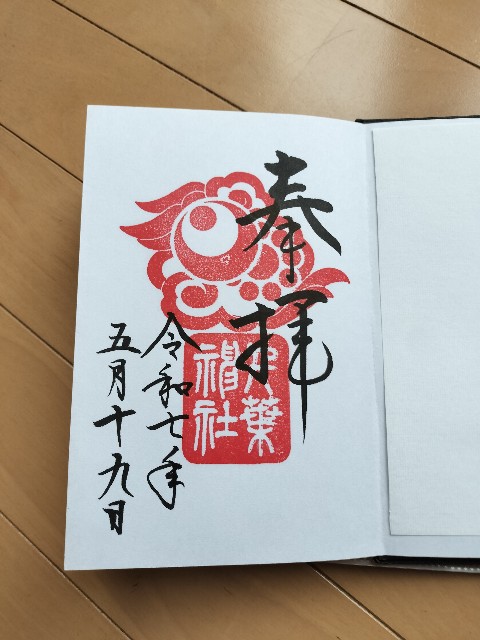 奉拝
葉
神社
令和七年
五月十九日